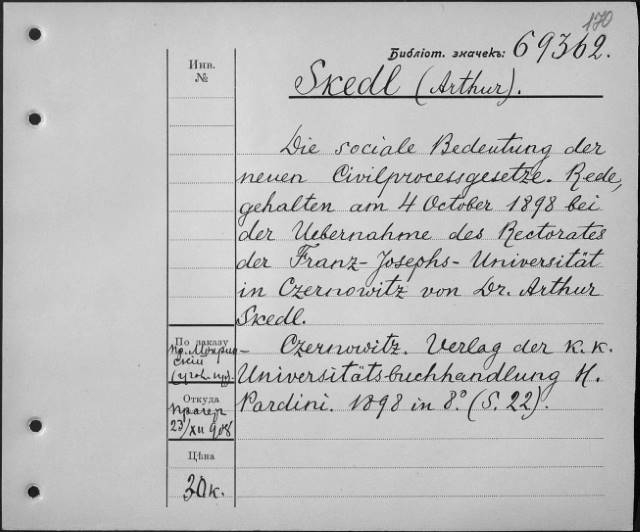 170
Библіот. значекъ: 69362.
Инв.
№
Skedl (Arthur).
Die sociale Bedeutung der
neuen Civilprocessgesetze. Rede,
gehalten am 4 October 1898 bei
der Uebernahme des Rectorates
der Franz-Josephs-Universität
in Czernowitz von Dr. Arthur
Skedl.
Czernowitz. Verlag der K. K.
Universitätsbuchhandlung H.
Pardini. 1898 in 8.° (S. 22).
По заказу
пр. Мокрин-
скій
Откуда
23/XII 908
Цѣна
30 к.